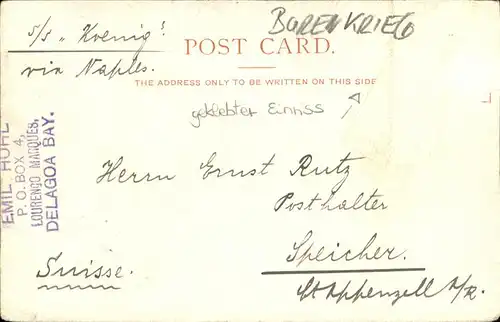 s/s „Koenig".
BURENKRIEG
POST CARD.
via Naples.
THE ADDRESS ONLY TO BE WRITTEN ON THIS SIDE
geklebter Einriss
EMIL HOHL
P. O. BOX 4,
LOURENCO MARQUES,
DELAGOA BAY.
Herrn Ernst Rutz
Posthalter
Speicher.
Suisse.
Ct. Appenzell A/R.